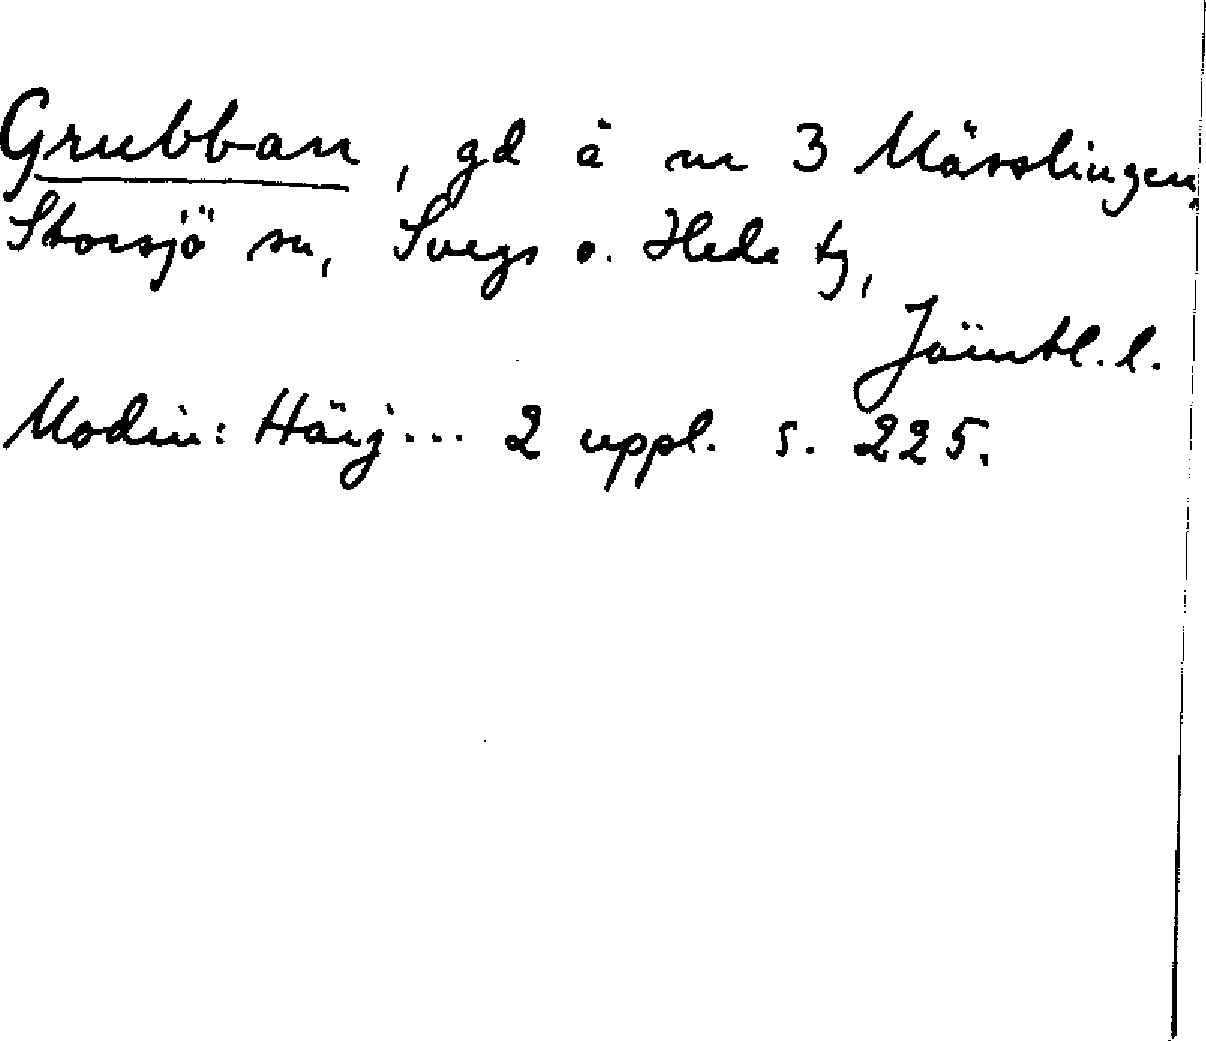 Grubban, gd å nr 3 Mässlingen,
Storsjö sn, Svegs o. Heds tg,
Jämtl. l.
Modin: Härj... 2 uppl. s. 225.